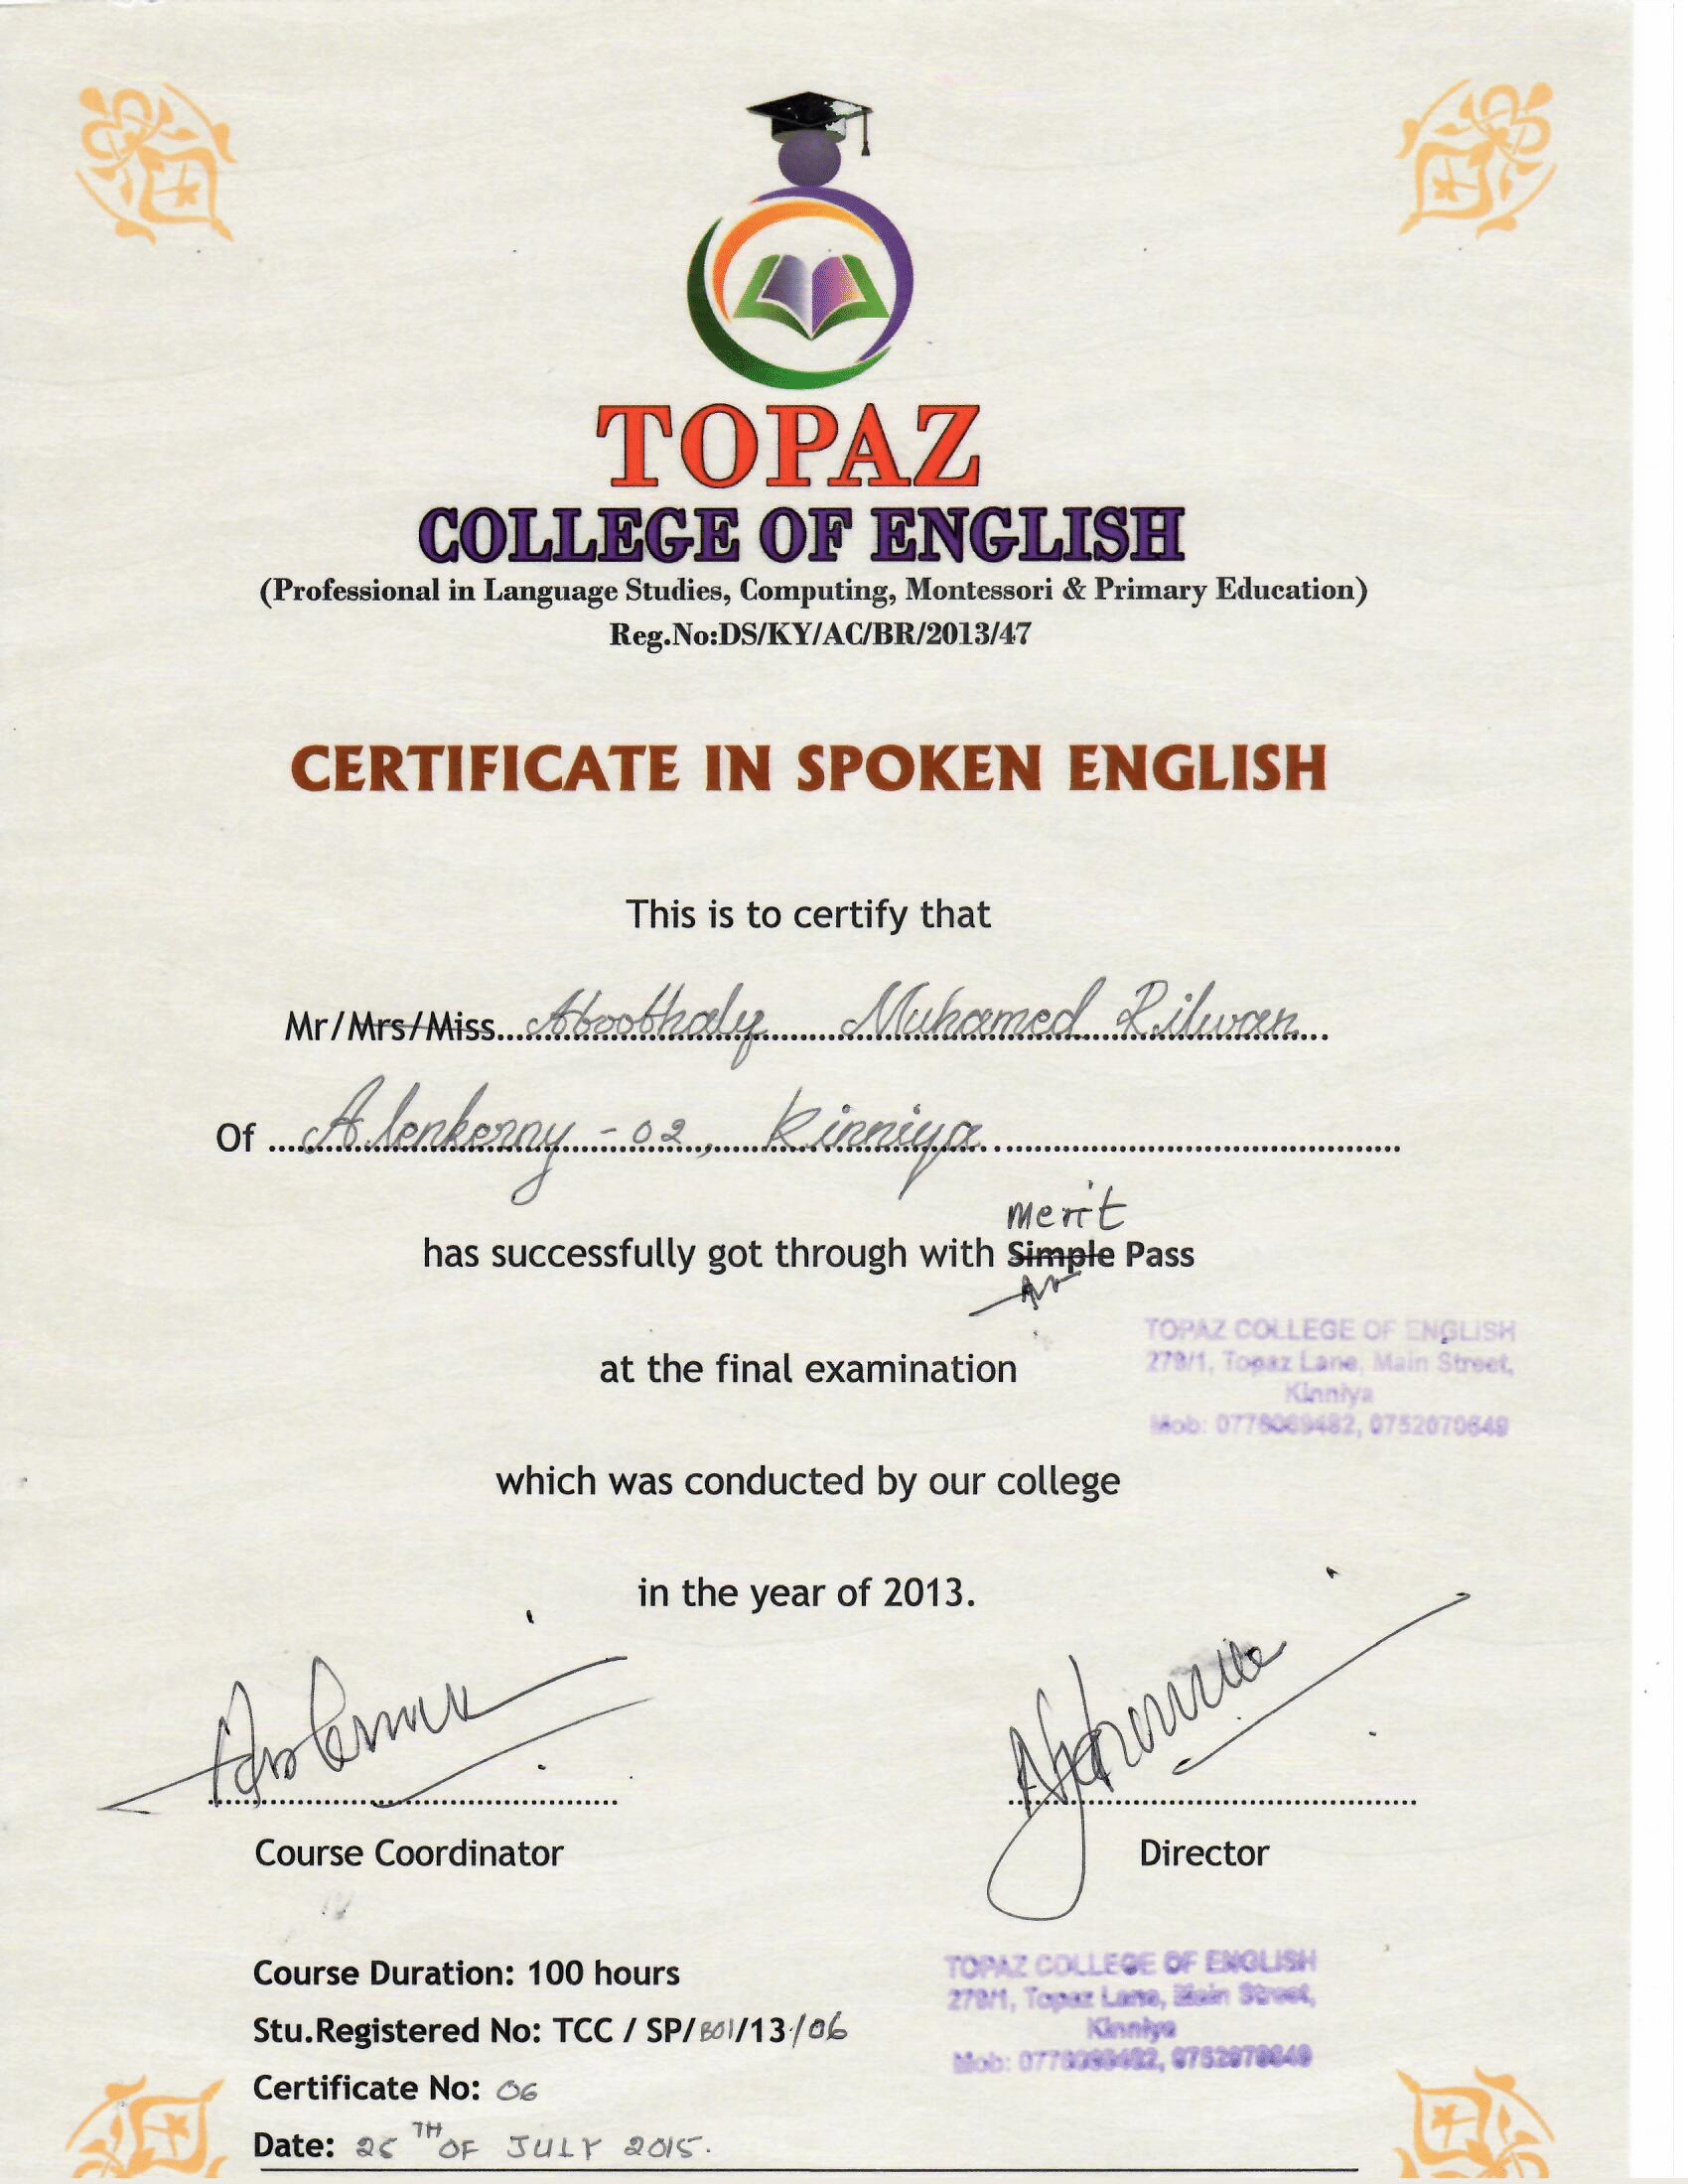 TOPAZ
COLLEGE OF ENGLISH
(Professional in Language Studies, Computing, Montessori & Primary Education)
Reg.No:DS/KY/AC/BR/2013/47
CERTIFICATE IN SPOKEN ENGLISH
This is to certify that
Mr/Mrs/Miss Aboothaly Muhamed Rilwan
Of Alenkerny - 02, Kinniya
merit
has successfully got through with Simple Pass
at the final examination
TOPAZ COLLEGE OF ENGLISH
279/1, Topaz Lane, Main Street,
Kinniya
Mob: 0752070649
which was conducted by our college
in the year of 2013.
Course Coordinator
Director
Course Duration: 100 hours
Stu.Registered No: TCC / SP/B01/13/06
Certificate No: 06
Date: 25 TH OF JULY 2015.
TOPAZ COLLEGE OF ENGLISH
279/1, Topaz Lane, Main Street,
Kinniya
Mob: